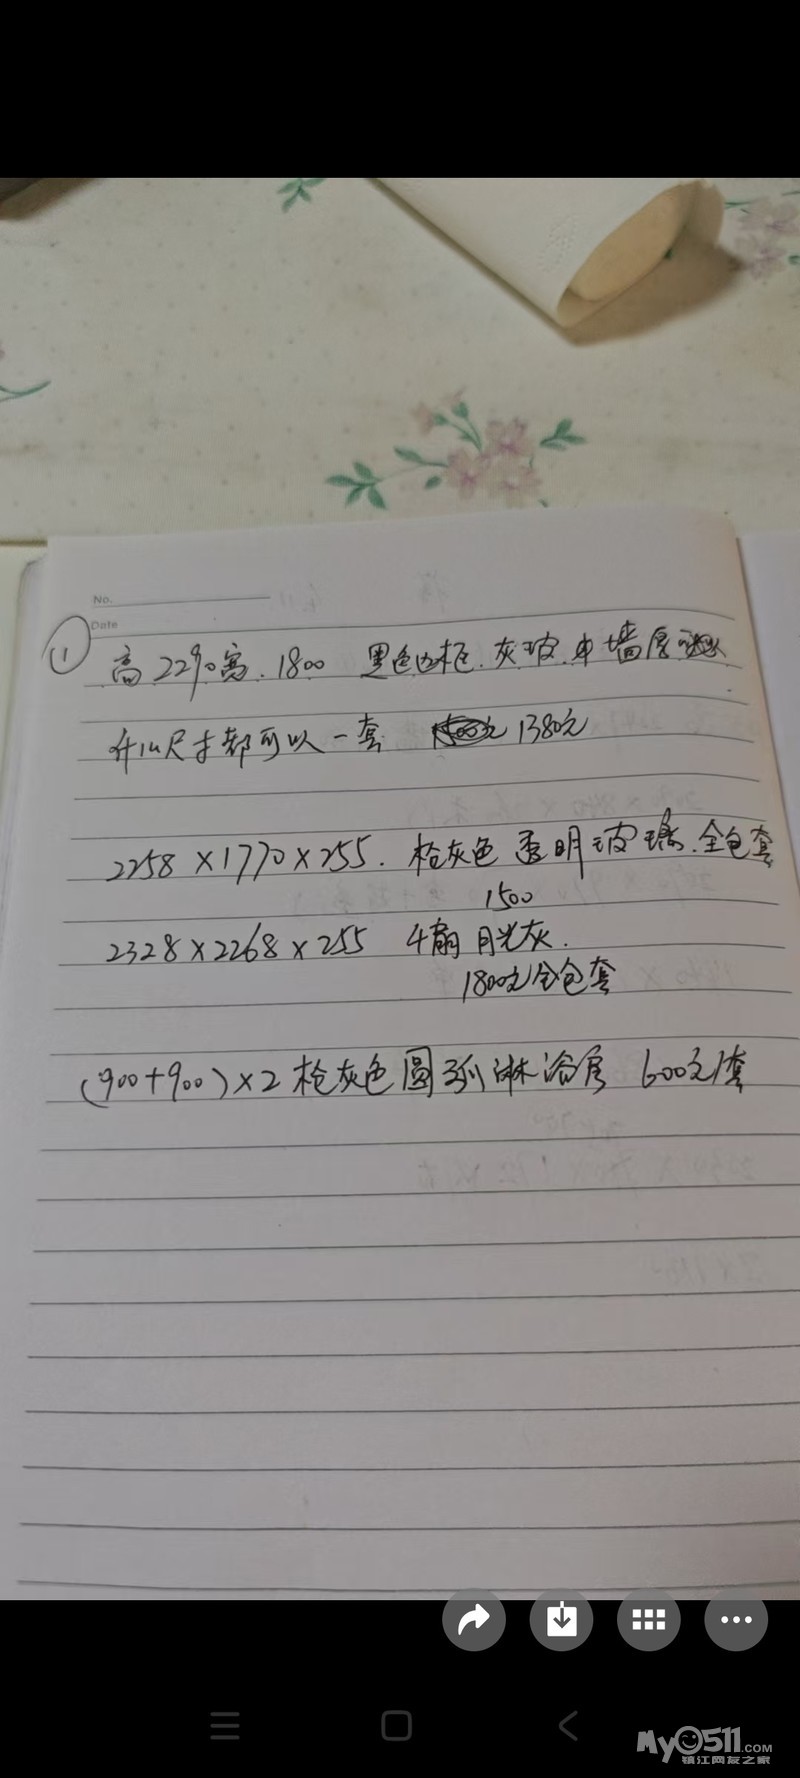 No.
Date
① 高2290宽.1800 黑色边框.灰玻.中墙厚
尺寸都可以一套 1380元
2258×1770×255. 枪灰色 透明玻璃.全包套
1500
2328×2268×255 4扇 月光灰.
1800元全包套
(900+900)×2 枪灰色圆弧淋浴房 600元/套
My0511.COM
镇江网友之家